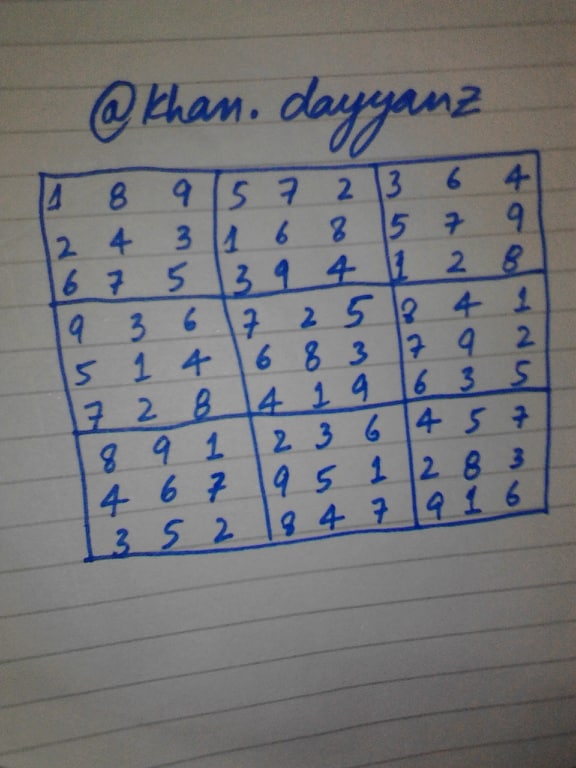 @khan. dayyanz
1 8 9 5 7 2 3 6 4
2 4 3 1 6 8 5 7 9
6 7 5 3 9 4 1 2 8
9 3 6 7 2 5 8 4 1
5 1 4 6 8 3 7 9 2
7 2 8 4 1 9 6 3 5
8 9 1 2 3 6 4 5 7
4 6 7 9 5 1 2 8 3
3 5 2 8 4 7 9 1 6